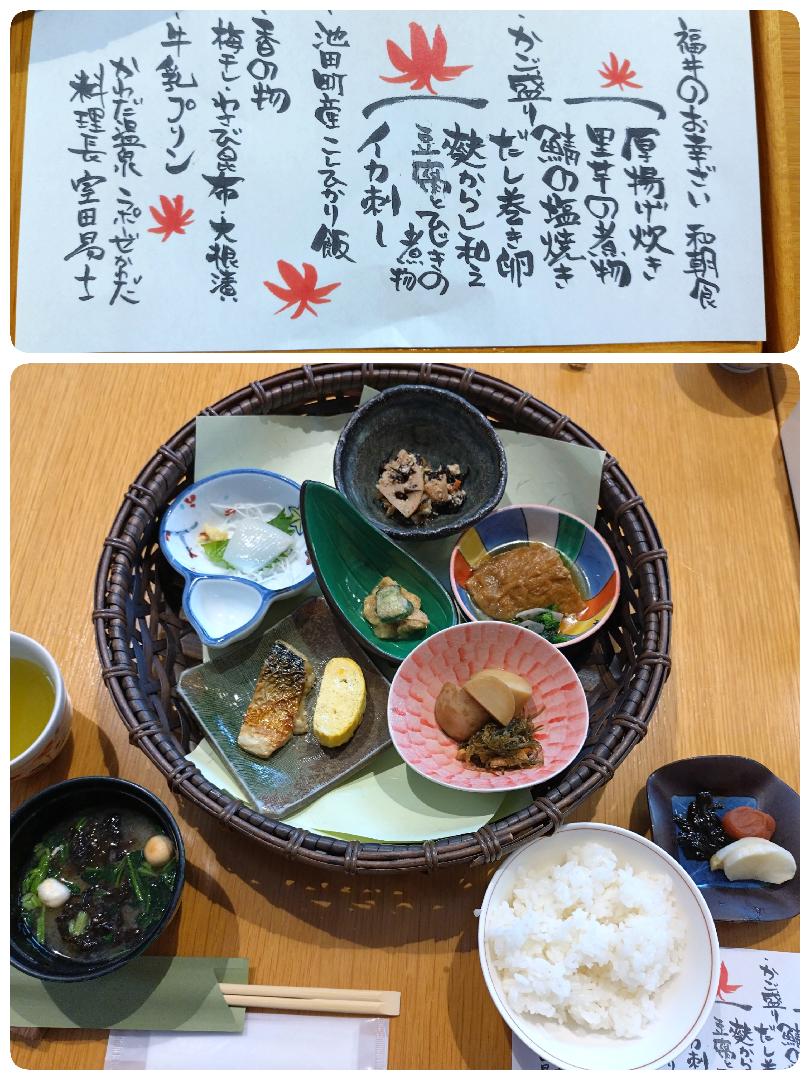 福井のお幸ざい 和朝食
厚揚げ炊き
里芋の煮物
鯖の塩焼き
・かご盛り
だし巻き卵
麩からし和え
豆腐とひじきの煮物
イカ刺し
・池田町産こしひかり飯
・香の物
梅干し・わさび昆布・大根漬
・牛乳プリン
かわだ温泉 ラポーゼかわだ
料理長 室田易士
・かご盛
だし巻
麩から
豆腐
イカ刺